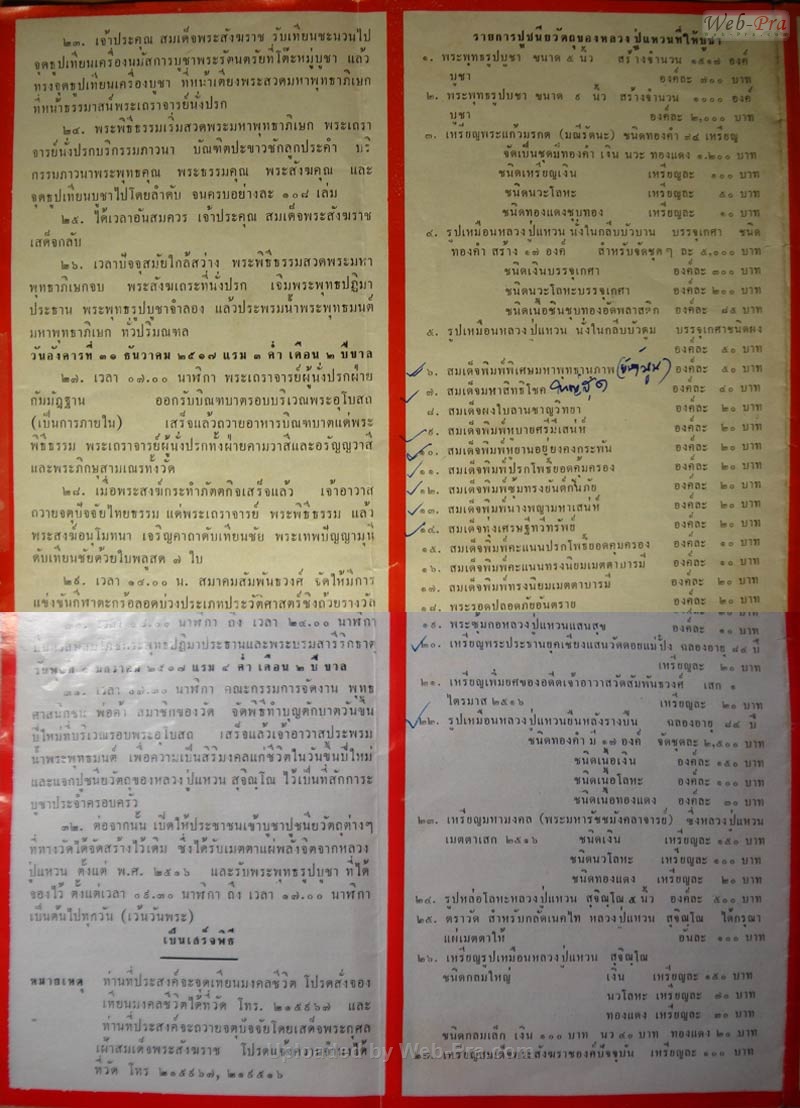 ๒๓. เจ้าประคุณ สมเด็จพระสังฆราช รับเทียนชะนวนไป
จุดธูปเทียนเครื่องนมัสการบูชาพระรัตนตรัยที่โต๊ะหมู่บูชา แล้ว
ทรงจุดธูปเทียนเครื่องบูชา ที่หน้าเตียงพระสวดมหาพุทธาภิเษก
ที่หน้าธรรมาสน์พระเถราจารย์นั่งปรก
๒๔. พระพิธีธรรมเริ่มสวดพระมหาพุทธาภิเษก พระเถรา
จารย์นั่งปรกบริกรรมภาวนา บัณฑิตปะขาวชักลูกประคำ บริ
กรรมภาวนาพระพุทธคุณ พระธรรมคุณ พระสังฆคุณ และ
จุดธูปเทียนบูชาไปโดยลำดับ จนครบอย่างละ ๑๐๘ เล่ม
๒๕. ได้เวลาอันสมควร เจ้าประคุณ สมเด็จพระสังฆราช
เสด็จกลับ
๒๖. เวลาปัจจุสมัยใกล้สว่าง พระพิธีธรรมสวดพระมหา
พุทธาภิเษกจบ พระสังฆเถระที่นั่งปรก เจิมพระพุทธปฏิมา
ประธาน พระพุทธรูปบูชาจำลอง แล้วประพรมน้ำพระพุทธมนต์
มหาพุทธาภิเษก ทั่วปริมณฑล
วันอังคารที่ ๓๑ ธันวาคม ๒๕๑๗ แรม ๓ ค่ำ เดือน ๒ ปีขาล
๒๗. เวลา ๐๗.๐๐ นาฬิกา พระเถราจารย์ผู้นั่งปรกฝ่าย
กัมมัฏฐาน ออกรับบิณฑบาตรอบบริเวณพระอุโบสถ
(เป็นการภายใน) เสร็จแล้วถวายอาหารบิณฑบาตแด่พระ
พิธีธรรม พระเถราจารย์ผู้นั่งปรกทั้งฝ่ายคามวาสีและอรัญญวาสี
และพระภิกษุสามเณรทั้งวัด
๒๘. เมื่อพระสงฆ์กระทำภัตตกิจเสร็จแล้ว เจ้าอาวาส
ถวายจตุปัจจัยไทยธรรม แด่พระเถราจารย์ พระพิธีธรรม แล้ว
พระสงฆ์อนุโมทนา เจริญคาถาดับเทียนชัย พระเทพปัญญามุนี
ดับเทียนชัยด้วยใบพลูสด ๗ ใบ
๒๙. เวลา ๑๔.๐๐ น. สมาคมสัมพันธวงศ์ จัดให้มีการ
แข่งขันกีฬาตะกร้อลอดบ่วงประเภทประวัติศาสตร์ชิงถ้วยรางวัล
เวลา ๑๙.๐๐ นาฬิกา ถึง เวลา ๒๔.๐๐ นาฬิกา
พระพุทธปฏิมาประธานและพระบรมสารีริกธาตุ
๒๕๑๗ แรม ๔ ค่ำ เดือน ๒ ปี ขาล
๓๑. เวลา ๐๗.๓๐ นาฬิกา คณะกรรมการจัดงาน พุทธ
ศาสนิกชน พ่อค้า สมาชิกของวัด จัดพิธีทำบุญตักบาตรวันขึ้น
ปีใหม่ที่บริเวณรอบพระอุโบสถ เสร็จแล้วเจ้าอาวาสประพรม
น้ำพระพุทธมนต์ เพื่อความเป็นสิริมงคลแก่ชีวิตในวันขึ้นปีใหม่
และแจกปูชนียวัตถุของหลวงปู่แหวน สุจิณโณ ไว้เป็นที่สักการะ
บูชาประจำครอบครัว
๓๒. ต่อจากนั้น เปิดให้ประชาชนเข้าบูชาปูชนียวัตถุต่างๆ
ที่ทางวัดได้จัดสร้างไว้เดิม ซึ่งได้รับเมตตาแผ่พลังจิตจากหลวง
ปู่แหวน ตั้งแต่ พ.ศ. ๒๕๑๖ และรับพระพุทธรูปบูชา ที่ได้
จองไว้ ตั้งแต่เวลา ๐๙.๓๐ นาฬิกา ถึง เวลา ๑๗.๐๐ นาฬิกา
เป็นต้นไปทุกวัน (เว้นวันพระ)
เป็นเสร็จพิธี
หมายเหตุ ท่านที่ประสงค์จะจุดเทียนมงคลชีวิต โปรดสั่งจอง
เทียนมงคลชีวิตได้ที่วัด โทร. ๒๑๕๙๖๗ และ
ท่านที่ประสงค์จะถวายจตุปัจจัยโดยเสด็จพระกุศล
เฝ้าสมเด็จพระสังฆราช โปรดแจ้งความจำนงได้
ที่วัด โทร ๒๑๕๙๖๗, ๒๑๙๕๑๖
รายการปูชนียวัตถุของหลวงปู่แหวนที่ให้บูชา
๑. พระพุทธรูปบูชา ขนาด ๕ นิ้ว สร้างจำนวน ๑๕๑๗ องค์
บูชา องค์ละ ๗๐๐ บาท
๒. พระพุทธรูปบูชา ขนาด ๙ นิ้ว สร้างจำนวน ๑๐๐๐ องค์
บูชา องค์ละ ๒,๐๐๐ บาท
๓. เหรียญพระแก้วมรกต (มณีรัตนะ) ชนิดทองคำ ๘๔ เหรียญ
จัดเป็นชุดมีทองคำ เงิน นวะ ทองแดง ๑.๒๐๐ บาท
ชนิดเหรียญเงิน เหรียญละ ๑๐๐ บาท
ชนิดนวะโลหะ เหรียญละ ๕๐ บาท
ชนิดทองแดงชุบทอง เหรียญละ ๑๐ บาท
๔. รูปเหมือนหลวงปู่แหวน นั่งในกลีบบัวบาน บรรจุเกศา ชนิด
ทองคำ สร้าง ๑๗ องค์ สำหรับจัดชุดๆ ละ ๕,๐๐๐ บาท
ชนิดเงินบรรจุเกศา องค์ละ ๓๐๐ บาท
ชนิดนวะโลหะบรรจุเกศา องค์ละ ๒๐๐ บาท
ชนิดเนื้อชินชุบทองอัดพลาสติก องค์ละ ๘๕ บาท
๕. รูปเหมือนหลวงปู่แหวน นั่งในกลีบบัวตูม บรรจุเกศาชนิดผง
องค์ละ ๕๐ บาท
๖. สมเด็จพิมพ์พิเศษมหาพุทธานุภาพ องค์ละ ๕๐ บาท
๗. สมเด็จมหาสิทธิโชค องค์ละ ๔๐ บาท
๘. สมเด็จผงใบลานชาญวิทยา องค์ละ ๒๐ บาท
๙. สมเด็จพิมพ์ทบายศรีมีเสน่ห์ องค์ละ ๒๐ บาท
๑๐. สมเด็จพิมพ์หยานอยู่ยงคงกระพัน องค์ละ ๒๐ บาท
๑๑. สมเด็จพิมพ์ปรกโพธิ์ยอดคุ้มครอง องค์ละ ๒๐ บาท
๑๒. สมเด็จพิมพ์ซุ้มทรงยันต์กันภัย องค์ละ ๒๐ บาท
๑๓. สมเด็จพิมพ์นางพญามหาเสน่ห์ องค์ละ ๒๐ บาท
๑๔. สมเด็จทุ่งเศรษฐีทวีทรัพย์ องค์ละ ๒๐ บาท
๑๕. สมเด็จพิมพ์คะแนนปรกโพธิ์ยอดคุ้มครอง องค์ละ ๑๐ บาท
๑๖. สมเด็จพิมพ์คะแนนทรงนิยมเมตตาบารมี องค์ละ ๑๐ บาท
๑๗. สมเด็จพิมพ์ทรงนิยมเมตตาบารมี องค์ละ ๒๐ บาท
๑๘. พระรอดปลอดภัยอันตราย องค์ละ ๒๐ บาท
๑๙. พระซุ้มกอหลวงปู่แหวนแสนสุข องค์ละ ๑๐ บาท
๒๐. เหรียญพระประธานยุคเชียงแสนวัดดอยแม่ปั๋ง ฉลองอายุ ๘๔ ปี
เหรียญละ ๒๐ บาท
๒๑. เหรียญเพิ่มยศของอดีตเจ้าอาวาสวัดสัมพันธวงศ์ เสก ๑
ไตรมาส ๒๕๑๖ เหรียญละ ๒๐ บาท
๒๒. รูปเหมือนหลวงปู่แหวนยืนหลังรางปืน ฉลองอายุ ๘๔ ปี
ชนิดทองคำ มี ๑๗ องค์ จัดชุดละ ๒,๕๐๐ บาท
ชนิดเนื้อเงิน องค์ละ ๑๕๐ บาท
ชนิดเนื้อโลหะ องค์ละ ๑๐๐ บาท
ชนิดเนื้อทองแดง องค์ละ ๓๐ บาท
๒๓. เหรียญมหามงคล (พระมหารัชชมังคลาจารย์) ซึ่งหลวงปู่แหวน
เมตตาเสก ๒๕๑๖ ชนิดเงิน เหรียญละ ๑๕๐ บาท
ชนิดนวโลหะ เหรียญละ ๑๐๐ บาท
ชนิดทองแดง เหรียญละ ๒๐ บาท
๒๔. รูปหล่อโลหะหลวงปู่แหวน สุจิณโณ ๕ นิ้ว องค์ละ ๕๐๐ บาท
๒๕. ตราวัด สำหรับกลัดเนคไท หลวงปู่แหวน สุจิณโณ ได้กรุณา
แผ่เมตตาให้ อันละ ๑๐๐ บาท
๒๖. เหรียญรูปเหมือนหลวงปู่แหวน สุจิณโณ
ชนิดกลมใหญ่ เงิน เหรียญละ ๑๕๐ บาท
นวโลหะ เหรียญละ ๗๐ บาท
ทองแดง เหรียญละ ๓๐ บาท
ชนิดกลมเล็ก เงิน ๑๐๐ บาท นว ๔๐ บาท ทองแดง ๒๐ บาท
๒๗. เหรียญสมเด็จพระสังฆราชองค์ปัจจุบัน เหรียญละ ๑๐๐ บาท
Web-Pra
Uploaded by Web-Pra.com